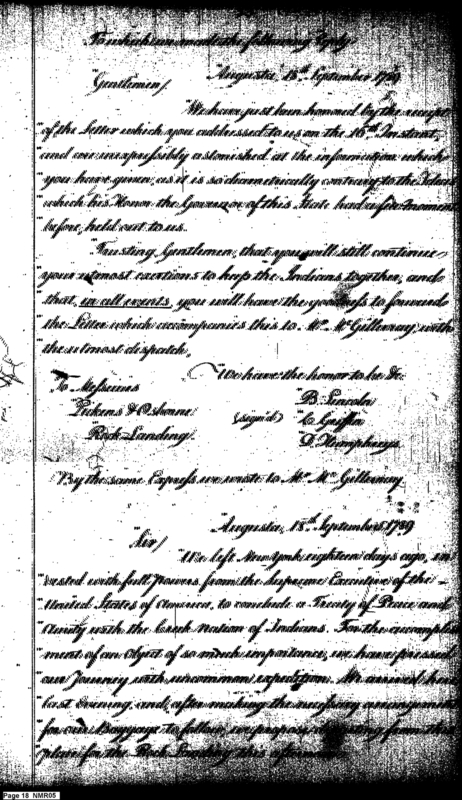 To which we made the following Reply
"Augusta, 18th September 1789
"Gentlemen/
"We have just been honored by the receipt
"of the Letter which you addressed to us on the 16th Instant,
"and are inexpressibly astonished at the information which
"you have given, as it is so diametrically contrary to the Ideas
"which his Honor the Governor of this State had a few moments
"before, held out to us.
"Trusting, Gentlemen, that you will still continue
"your utmost exertions to keep the Indians together, and
"that, in all events, you will have the goodness to forward
"the Letter which accompanies this to Mr. McGillivray, with
"the utmost dispatch,
"We have the honor to be &c.
"To Messieurs
"B. Lincoln
"Pickens & Osborne
(signed)
"C. Griffin
"Rock-Landing.
"D. Humphreys
By the same Express we wrote to Mr. McGillivray.
"Augusta, 18th September, 1789
"Sir/
"We left New York eighteen days ago, in=
"vested with full Powers from the Supreme Executive of the
"United States of America, to conclude a Treaty of Peace and
"Amity with the Creek Nation of Indians. For the accomplish
"ment of an Object of so much importance, we have pressed
"our Journey with uncommon expedition. We arrived here
"last Evening, and, after making the necessary arrangements
"for our Baggage to follow, we propose departing from this
"place for the Rock Landing this afternoon
Page 18 NMR05